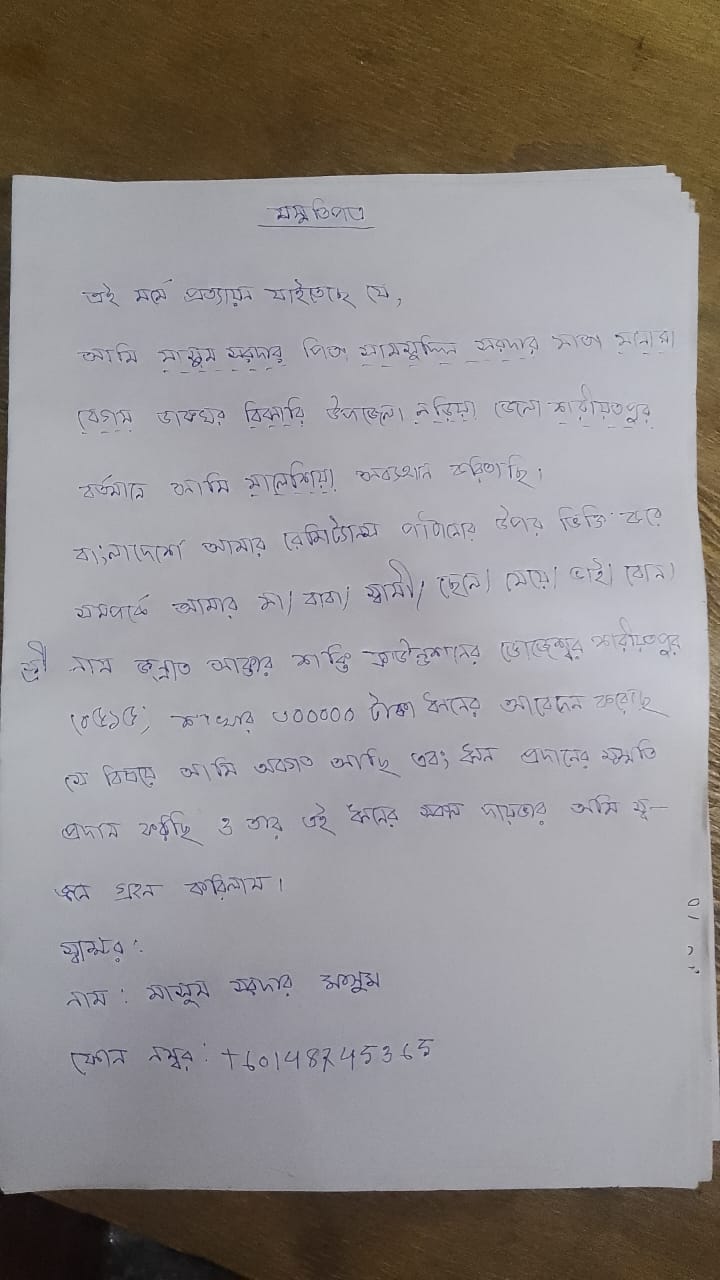 সম্মতিপত্র
এই মর্মে প্রত্যায়ন যাইতেছে যে,
আমি মাসুম সরদার পিতা সামসুদ্দিন সরদার মাতা মনোরা
বেগম ডাকঘর বিঝারি উপজেলা নড়িয়া জেলা শরীয়তপুর
বর্তমানে আমি মালেশিয়া অবস্থান করিতাছি।
বাংলাদেশে আমার রেমিটেন্স পাঠানোর উপর ভিত্তি করে
সম্পর্কে আমার মা/ বাবা/ স্বামী/ ছেলে/ মেয়ে/ ভাই/ বোন/
স্ত্রী নাম জান্নাত আক্তার শক্তি ফাউন্ডেশনের ভোজেশ্বর শরীয়তপুর
(০৫১৫) শাখার ৩০০০০০ টাকা ঋনের আবেদন করেছে
যে বিষয়ে আমি অবগত আছি এবং ঋন প্রদানের সম্মতি
প্রদান করছি ও তার এই ঋনের সকল দায়ভার আমি স্ব-
জ্ঞানে গ্রহন করিলাম।
স্বাক্ষর:
নাম: মাসুম সরদার মাসুম
ফোন নম্বর: +60148745365